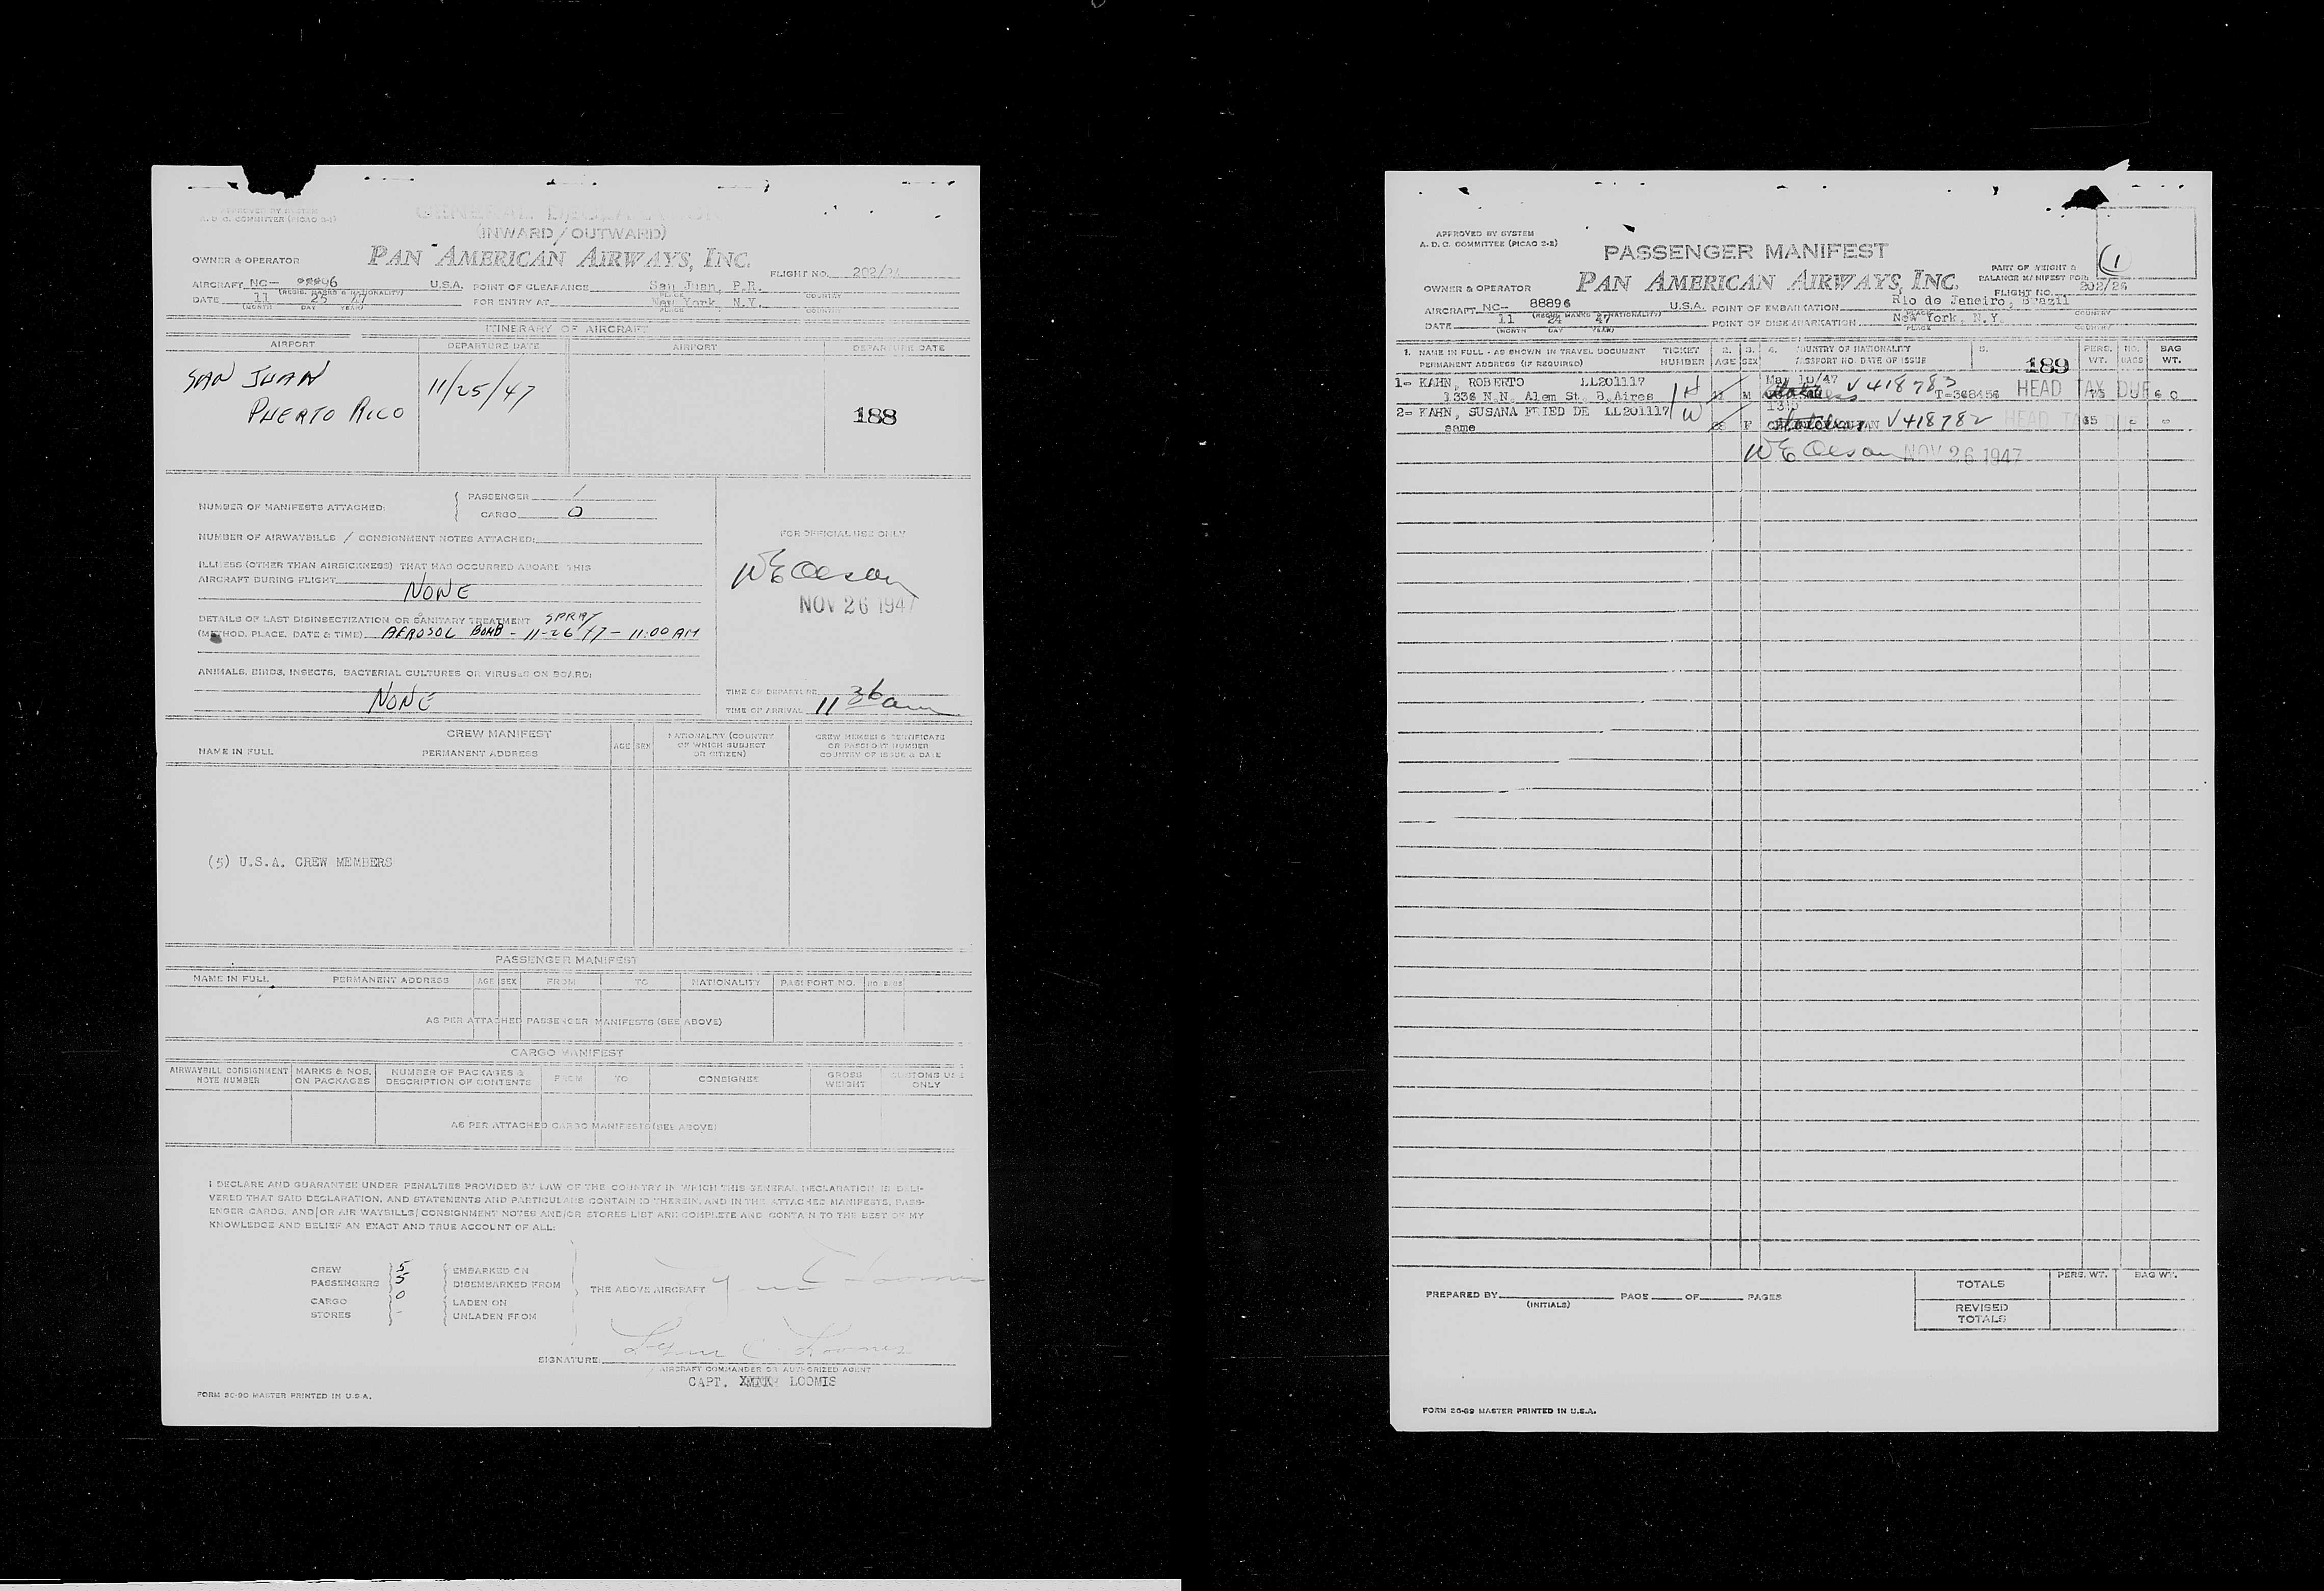 APPROVED BY SYSTEM
A. D. C. COMMITTEE (PICAO 2-1)
GENERAL DECLARATION
(INWARD / OUTWARD)
OWNER & OPERATOR PAN AMERICAN AIRWAYS, INC. FLIGHT NO. 202/
AIRCRAFT NC- 88896 U.S.A. POINT OF CLEARANCE San Juan, P.R.
(REGIS. MARKS & NATIONALITY) PLACE COUNTRY
DATE 11 25 47 FOR ENTRY AT New York, N.Y.
(MONTH DAY YEAR) PLACE COUNTRY
ITINERARY OF AIRCRAFT
AIRPORT DEPARTURE DATE AIRPORT DEPARTURE DATE
SAN JUAN 11/25/47
PUERTO RICO 188
NUMBER OF MANIFESTS ATTACHED: PASSENGER 1
CARGO 0
NUMBER OF AIRWAYBILLS / CONSIGNMENT NOTES ATTACHED:
FOR OFFICIAL USE ONLY
ILLNESS (OTHER THAN AIRSICKNESS) THAT HAS OCCURRED ABOARD THIS
AIRCRAFT DURING FLIGHT NONE
W E Olson
NOV 26 1947
DETAILS OF LAST DISINSECTIZATION OR SANITARY TREATMENT SPRAY
(METHOD, PLACE, DATE & TIME) AEROSOL BOMB - 11-26 47 - 11:00 AM
ANIMALS, BIRDS, INSECTS, BACTERIAL CULTURES OR VIRUSES ON BOARD:
NONE
TIME OF DEPARTURE
TIME OF ARRIVAL 11 36 am
CREW MANIFEST
NAME IN FULL PERMANENT ADDRESS AGE SEX NATIONALITY (COUNTRY OF WHICH SUBJECT OR CITIZEN) CREW MEMBERS CERTIFICATE OR PASSPORT NUMBER COUNTRY OF ISSUE & DATE
(5) U.S.A. CREW MEMBERS
PASSENGER MANIFEST
NAME IN FULL PERMANENT ADDRESS AGE SEX FROM TO NATIONALITY PASSPORT NO. NO. BAGS
AS PER ATTACHED PASSENGER MANIFESTS (SEE ABOVE)
CARGO MANIFEST
AIRWAYBILL CONSIGNMENT NOTE NUMBER MARKS & NOS. ON PACKAGES NUMBER OF PACKAGES & DESCRIPTION OF CONTENTS FROM TO CONSIGNEE GROSS WEIGHT CUSTOMS USE ONLY
AS PER ATTACHED CARGO MANIFESTS (SEE ABOVE)
I DECLARE AND GUARANTEE UNDER PENALTIES PROVIDED BY LAW OF THE COUNTRY IN WHICH THIS GENERAL DECLARATION IS DELI-
VERED THAT SAID DECLARATION, AND STATEMENTS AND PARTICULARS CONTAINED THEREIN, AND IN THE ATTACHED MANIFESTS, PASS-
ENGER CARDS, AND/OR AIR WAYBILLS/CONSIGNMENT NOTES AND/OR STORES LIST ARE COMPLETE AND CONTAIN TO THE BEST OF MY
KNOWLEDGE AND BELIEF AN EXACT AND TRUE ACCOUNT OF ALL:
CREW 5 EMBARKED ON
PASSENGERS 5 DISEMBARKED FROM THE ABOVE AIRCRAFT
CARGO 0 LADEN ON
STORES - UNLADEN FROM
SIGNATURE: Lynn C Loomis
AIRCRAFT COMMANDER OR AUTHORIZED AGENT
CAPT. LOOMIS
FORM 26-90 MASTER PRINTED IN U.S.A.
APPROVED BY SYSTEM
A. D. C. COMMITTEE (PICAO 2-2)
PASSENGER MANIFEST
1
OWNER & OPERATOR PAN AMERICAN AIRWAYS, INC.
PART OF WEIGHT &
BALANCE MANIFEST FOR
FLIGHT NO. 202/26
AIRCRAFT NC- 88896 U.S.A. POINT OF EMBARKATION Rio de Janeiro, Brazil
(REGIS. MARKS & NATIONALITY) PLACE COUNTRY
DATE 11 24 47 POINT OF DISEMBARKATION New York, N.Y.
(MONTH DAY YEAR) PLACE COUNTRY
1. NAME IN FULL - AS SHOWN IN TRAVEL DOCUMENT TICKET 2. 3. 4. COUNTRY OF NATIONALITY 5. 189 PERS. NO. BAG
PERMANENT ADDRESS (IF REQUIRED) NUMBER AGE SEX PASSPORT NO. DATE OF ISSUE WT. BAGS WT.
1- KAHN, ROBERTO LL201117 H May 10/47 V418783 HEAD TAX DUE
1336 N.N. Alem St. B.Aires M T-368456 75 60
2- KAHN, SUSANA FRIED DE LL201117 W V418782 HEAD TAX DUE
same F 65
W E Olson NOV 26 1947
PREPARED BY (INITIALS) PAGE OF PAGES
TOTALS PERS. WT. BAG WT.
REVISED TOTALS
FORM 26-89 MASTER PRINTED IN U.S.A.